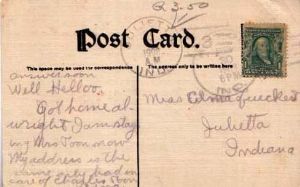 Q 3.50
Post Card.
THIS SPACE MAY BE USED FOR CORRESPONDENCE
THE ADDRESS ONLY TO BE WRITTEN HERE
answer soon
Well Helloo
Got home al
wright I am stay
ing Mrs Toon now
My address is the
same only had in
care of Charles Toon
Miss Elma
Julietta
Indiana
6 PM
IND